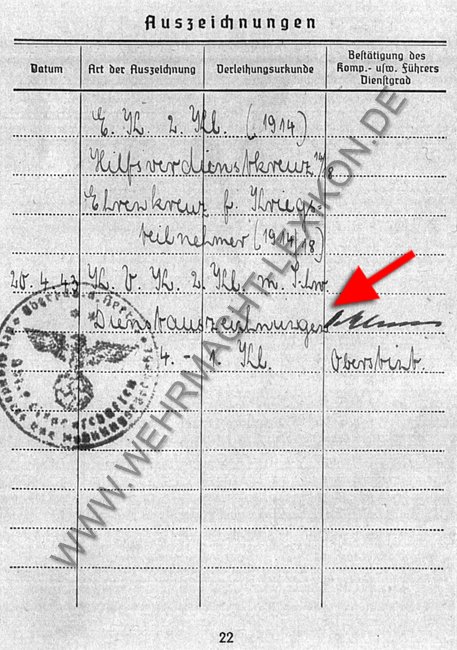 Auszeichnungen
Datum
Art der Auszeichnung
Verleihungsurkunde
Bestätigung des
Komp.- usw. Führers
Dienstgrad
E. K. 2. Kl. (1914)
Hilfsverdienstkreuz 14/18
Ehrenkreuz f. Kriegs-
teilnehmer (1914/18)
20.4.43 K. V. K. 2. Kl. m. Schw.
Dienstauszeichnungen
4. - 1. Kl. Oberstlt.
WWW.WEHRMACHT-LEXIKON.DE
22